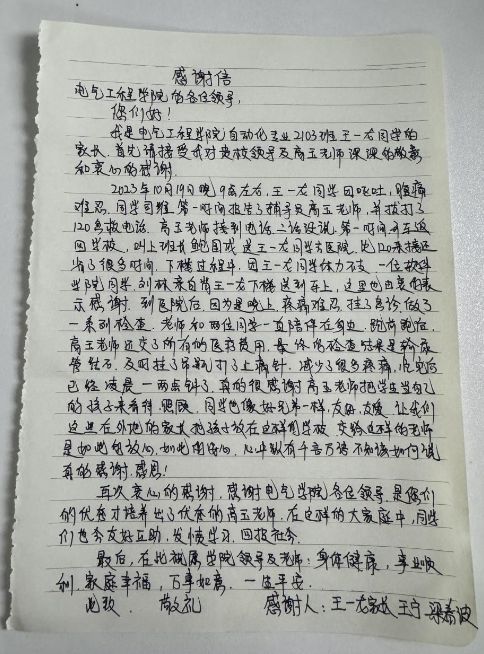 感谢信
电气工程学院的各位领导,
您们好!
我是电气工程学院自动化专业2103班王一龙同学的
家长.首先请接受我对贵校领导及高玉老师深深的敬意
和衷心的感谢.
2023年10月19日晚9点左右,王一龙同学因呕吐,腹痛
难忍.同学司雅第一时间报告了辅导员高玉老师,并拨打了
120急救电话.高玉老师接到电话二话没说第一时间开车返
回学校,叫上班长鲍国成送王一龙同学去医院,比120来接还
省了很多时间.下楼过程中,因王一龙同学体力不支,一位软件
学院同学,刘林亲自背王一龙下楼送到车上,这里也由衷的表
示感谢.到医院后,因为是晚上,疼痛难忍.挂了急诊,做了
一系列检查.老师和两位同学一直陪伴在身边.跑前跑后,
高玉老师还交了所有的医疗费用.最终的检查结果是输尿
管结石.及时挂了吊瓶打了止痛针,减少了很多疼痛,
已经凌晨一两点钟了.真的很感谢高玉老师把学生当自己
的孩子来看待,照顾.同学也像好兄弟一样,友好,友爱,让我们
这些在外地的家长把孩子放在这样的学校,交给这样的老师
是如此的放心,如此的安心,心中纵有千言万语不知该如何说
真的感谢.感恩!
再次衷心的感谢.感谢电气学院各位领导,是您们
的优秀才培养出了优秀的高玉老师.在这样的大家庭中,同学
们也会友好互助,发愤学习,回报社会.
最后,在此祝愿学院领导及老师:身体健康,事业顺
利.家庭幸福,万事如意.一生平安.
此致.敬礼 感谢人:王一龙家长 王宁 梁春波